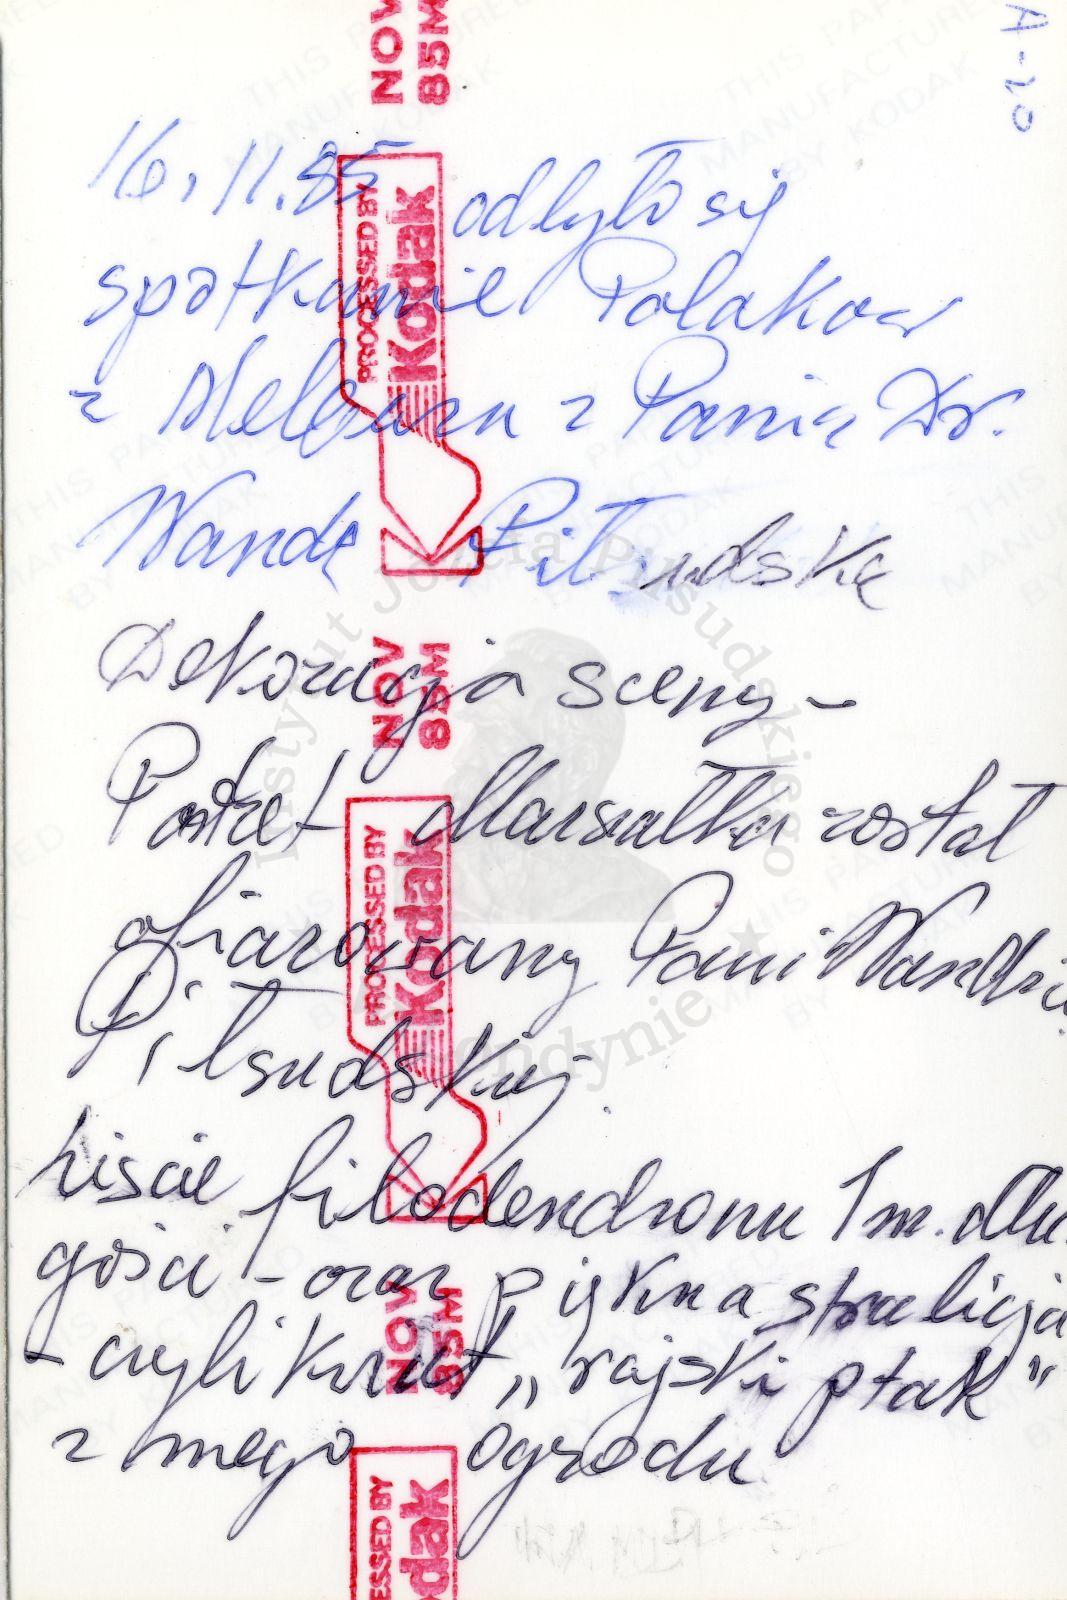 A-20
16.11.85 odbyło się
spotkanie Polakow
z Melbourn z Panią Dr.
Wandą Piłsudską
Dekoracja sceny –
Portret Marszałka został
ofiarowany Pani Wandzie
Piłsudskiej.
Liscie filodendronu 1 m. dłu
gości – oraz piękna strelicja
– czyli kwiat „rajski ptak"
z mego ogrodu
NOV
85M
PROCESSED BY
Kodak
NOV
85M
PROCESSED BY
Kodak
NOV
85M
PROCESSED BY
Kodak
THIS PAPER
MANUFACTURED
BY KODAK
Instytut Józefa Piłsudskiego
w Londynie